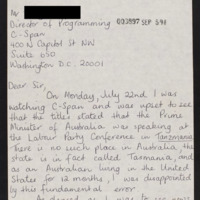 Mr
Director of Programming
C-Span
400 N Capitol St NW
Suite 650
Washington D.C. 20001
Dear Sir,
On Monday, July 22nd I was
watching C-Span and was upset to see
that the titles stated that the Prime
Minister of Australia was speaking at
the Labour Party Conference in Tanzmania.
There is no such place in Australia, the
state is in fact called Tasmania, and
as an Australian living in the United
States for 12 months, I was disappointed
by this fundamental error.